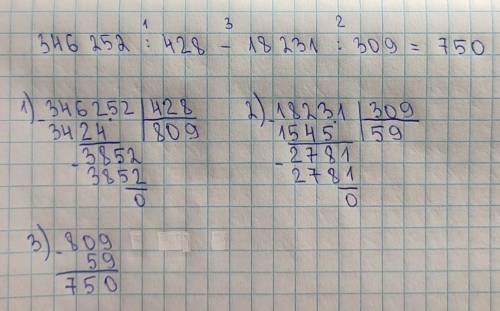 1 3 2
346 252 : 428 - 18 231 : 309 = 750
1) - 346252 | 428
3424 | 809
- 3852
3852
0
2) - 18231 | 309
1545 | 59
- 2781
2781
0
3) - 809
59
750